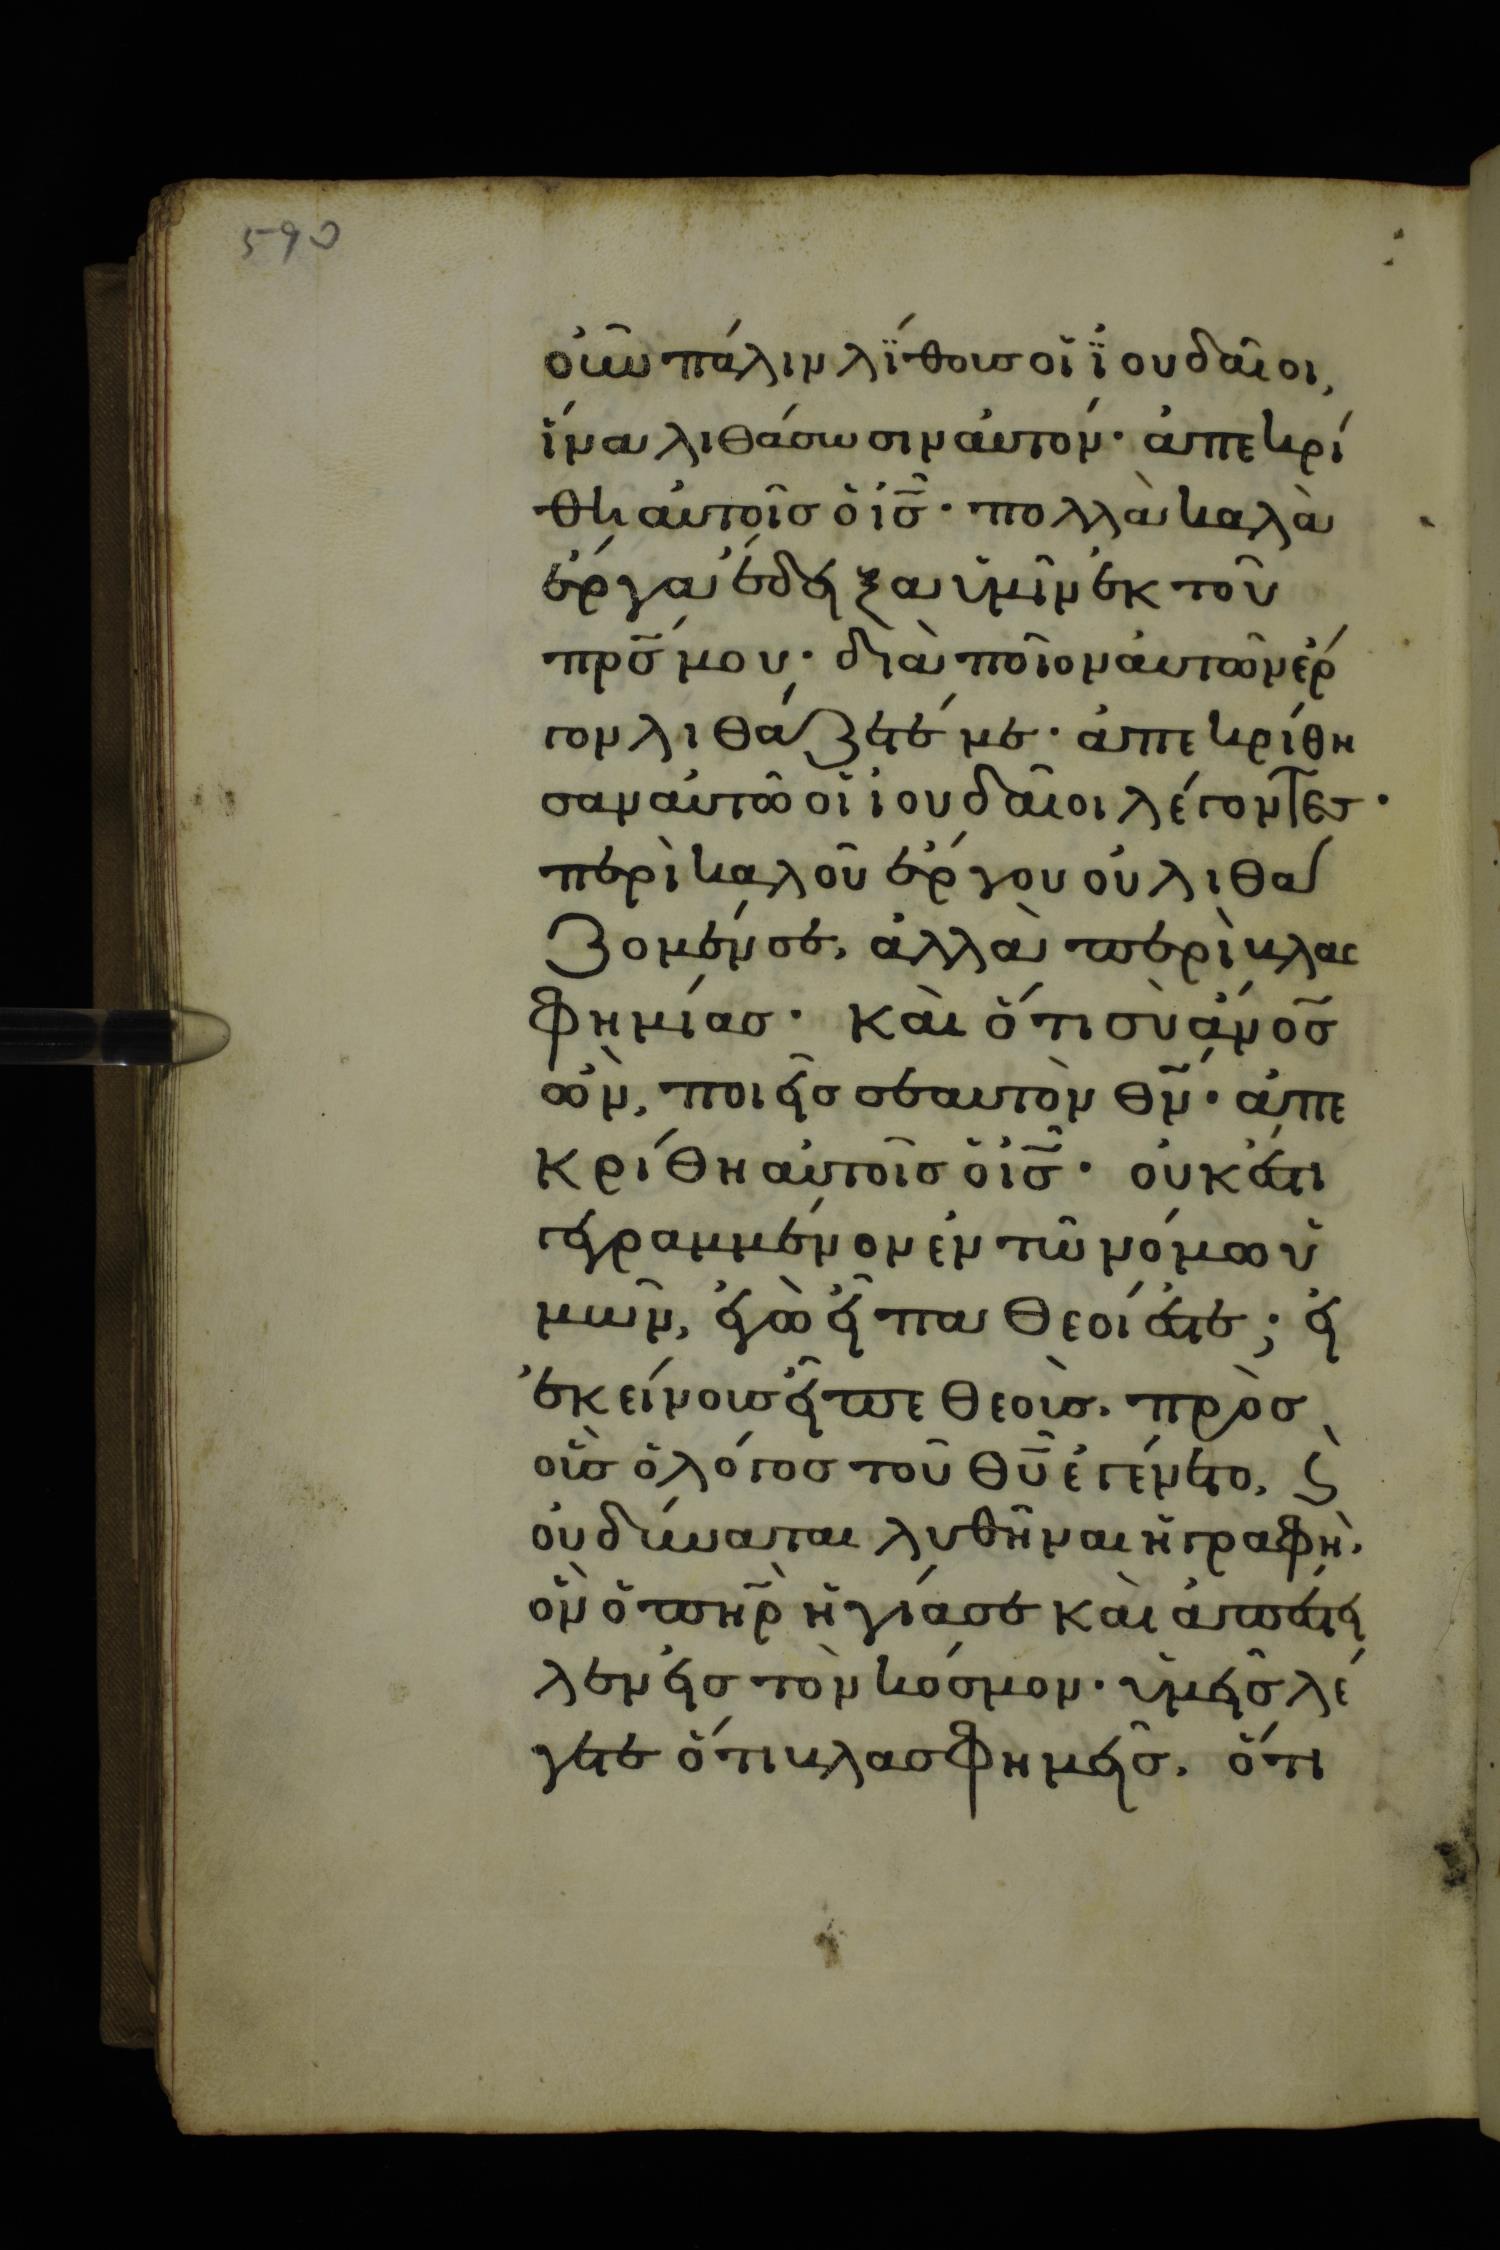 590
οὖν πάλιν λΐθοισ οἱ ϊουδαῖοι,
ἵνα λιθάσωσιν αὐτόν· ἀπεκρί
θη αὐτοῖσ ὁ ἰσ̅· πολλὰ καλὰ
ἔργα ἔδειξα ὑμῖν ἐκ τοῦ
πρσ̅ μου· διὰ ποῖον αὐτῶν ἔρ
γον λιθάζετέ με· ἀπεκρίθη
σαν αὐτῶ οἱ ἰουδαῖοι λέγοντεσ·
περὶ καλοῦ ἔργου οὐ λιθά
ζομέν σε, ἀλλὰ περὶ βλασ
φημίασ· καὶ ὅτι σὺ ἄνοσ̅
ὢν, ποιεῖσ σεαυτὸν θν̅· ἀπε
κρίθη αὐτοῖσ ὁ ἰσ̅· οὐκ ἔστι
γεγραμμένον ἐν τῶ νόμω ὑ
μῶν, ἐγὼ εἶπα θεοί ἐστε; εἰ
ἐκείνουσ εἶπε θεοὺσ, πρὸσ
οὓσ ὁ λόγοσ τοῦ θυ̅ ἐγένετο, ϛ̀
οὐ δύναται λυθῆναι ἡ γραφὴ,
ὃν ὁ πηρ̅ ἡγίασε καὶ ἀπέστει
λεν εἰσ τὸν κόσμον· ὑμεῖσ λέ
γετε ὅτι βλασφημεῖσ, ὅτι